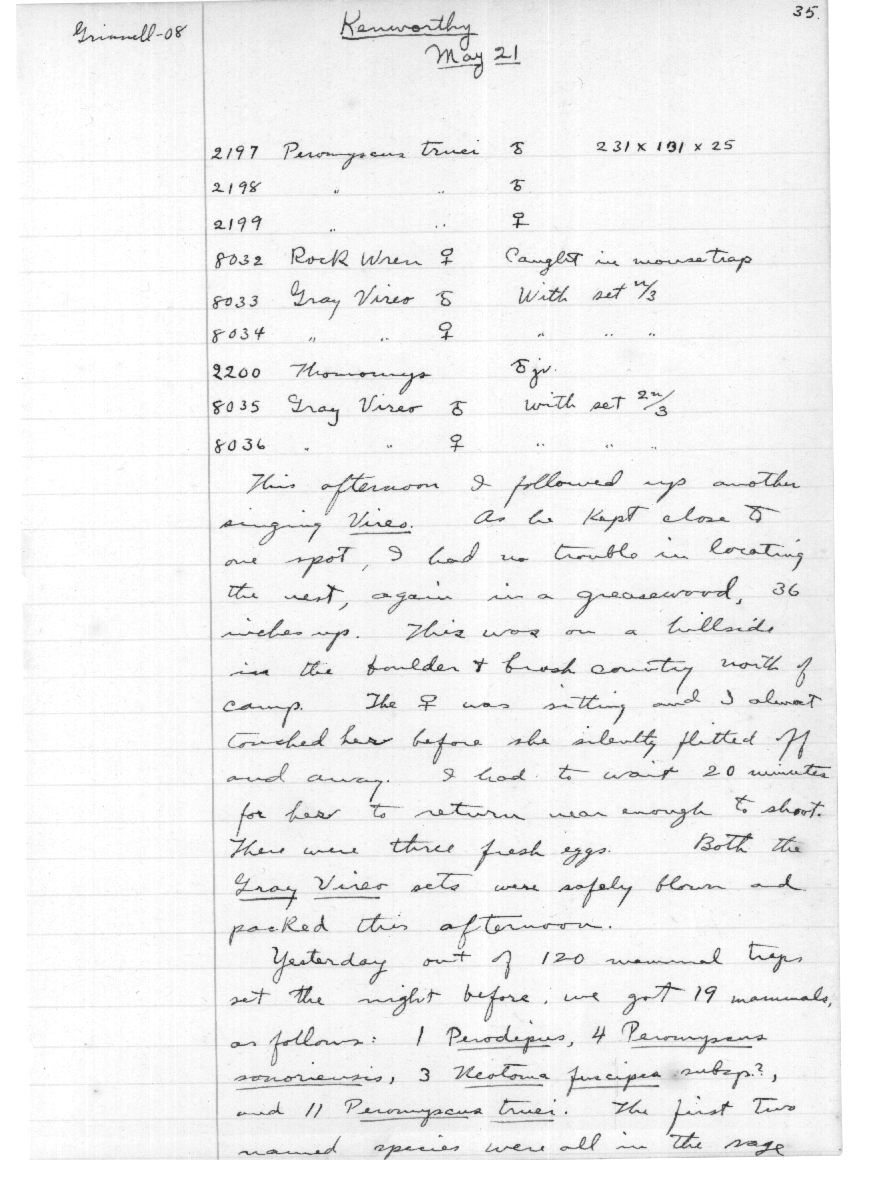 Grinnell-08
Kenworthy
May 21
35.
2197 Peromyscus truei ♂ 231 x 131 x 25
2198 " " ♂
2199 " " ♀
8032 Rock Wren ♀ Caught in mouse trap
8033 Gray Vireo ♂ With set n/3
8034 " " ♀ " " "
2200 Thomomys ♂ jv.
8035 Gray Vireo ♂ With set 2n/3
8036 " " ♀ " " "
This afternoon I followed up another
singing Vireo. As he kept close to
one spot, I had no trouble in locating
the nest, again in a greasewood, 36
inches up. This was on a hillside
in the boulder + brush country north of
camp. The ♀ was sitting and I almost
touched her before she silently flitted off
and away. I had to wait 20 minutes
for her to return near enough to shoot.
There were three fresh eggs. Both the
Gray Vireo sets were safely blown and
packed this afternoon.
Yesterday out of 120 mammal traps
set the night before, we got 19 mammals,
as follows: 1 Perodipus, 4 Peromyscus
sonoriensis, 3 Neotoma fuscipes subsp.?,
and 11 Peromyscus truei. The first two
named species were all in the sage